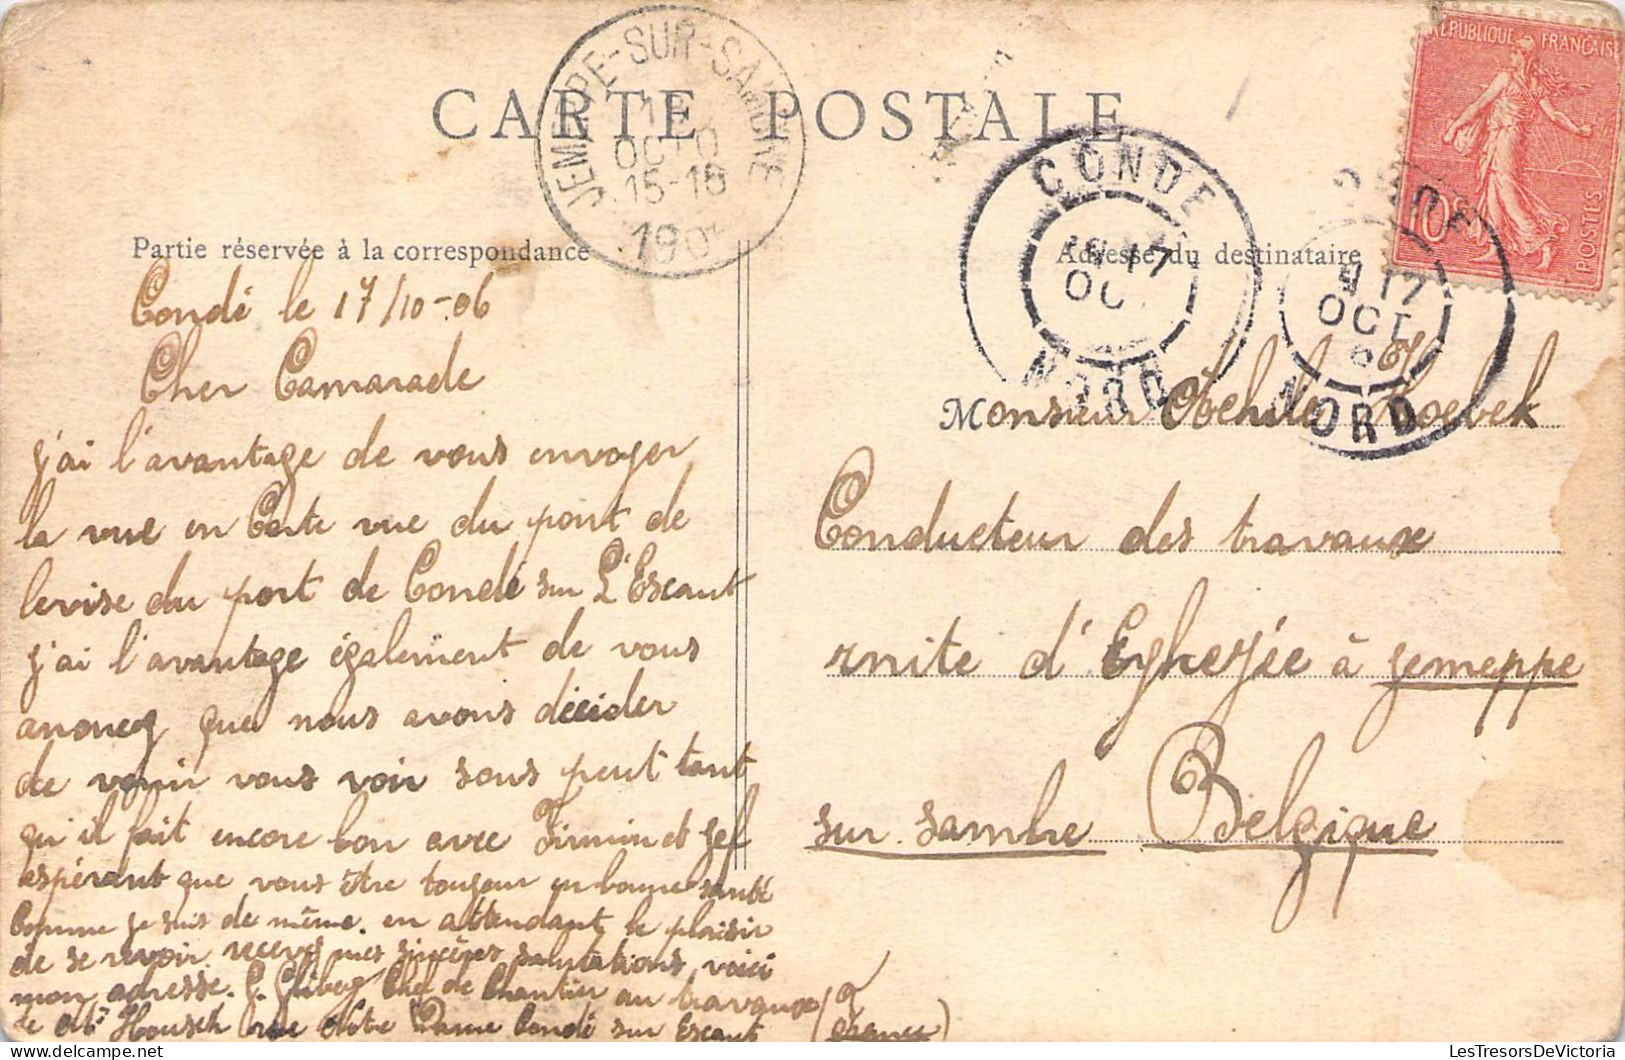 CARTE POSTALE
JEMEPPE-SUR-SAMBRE
OCTO
15-16
190
CONDE
17
OC
NORD
17
OCT
6
NORD
REPUBLIQUE FRANÇAISE
10
POSTES
Partie réservée à la correspondance
Adresse du destinataire
Condé le 17/10-06
Cher Camarade
j'ai l'avantage de vous envoyer
la vue en Carte vue du pont de
levise du port de Condé sur L'Escaut
j'ai l'avantage égalément de vous
anoncez que nous avons décider
de venir vous voir sous peut tant
qu'il fait encore bon avec Firmin et Jef
espérant que vous être toujour en bonne santé
Comme je suis de même. en attendant le plaisir
de se revoir recevez mes sincères salutations, voici
mon adresse. G. Chef de Chantier au travaux
de Mr Housch rue Notre Dame Condé sur Escaut (France)
Monsieur
Conducteur des travaux
d'Eghezée à Jemeppe
sur Sambre Belgique
LesTresorsDeVictoria.com